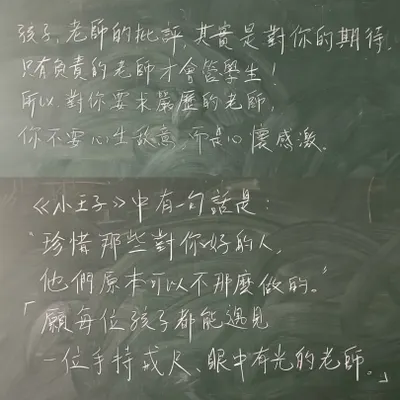 孩子，老師的批評，其實是對你的期待，
只有負責的老師才會管學生！
所以，對你要求嚴厲的老師，
你不要心生敵意，而是心懷感激。
《小王子》中有一句話是：
“珍惜那些對你好的人，
他們原本可以不那麼做的。”
「願每位孩子都能遇見
一位手持戒尺、眼中有光的老師。」